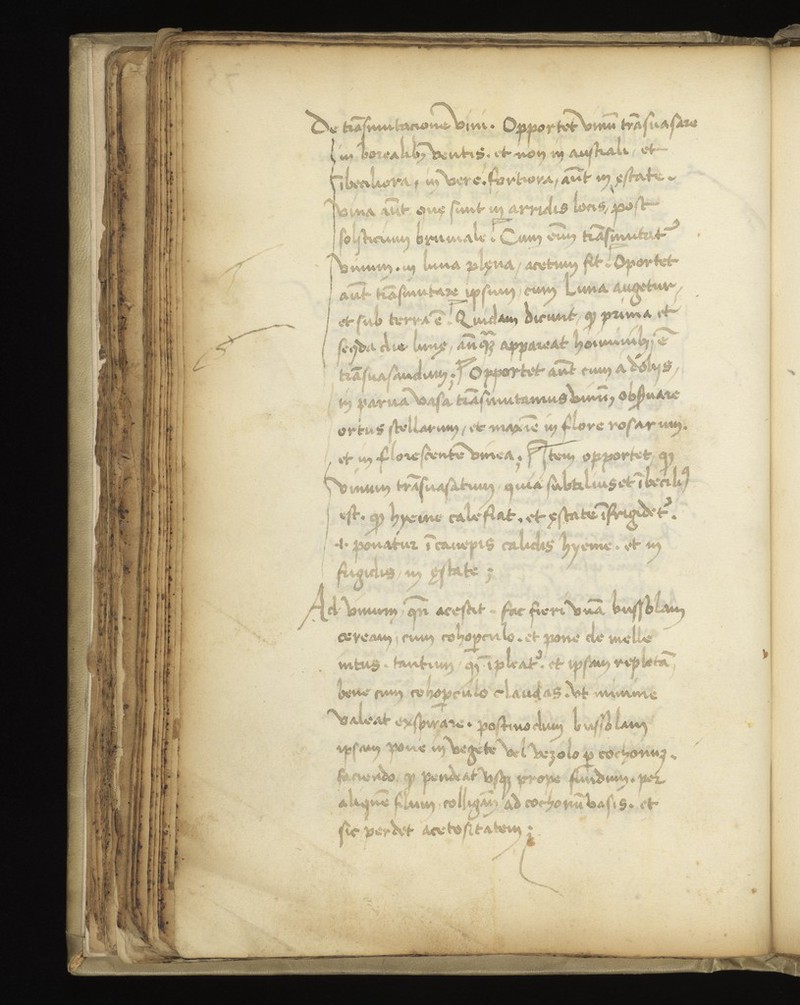 De trāsmutacione vini. Opportet vinū trāsuasare
in borealibꝫ ventis. et non in australi, et
ībeciliora, in vere. fortiora, aūt in ęstate.
vina aūt que sunt in arridis locis, post
solsticium brumale. Cum eīm trāsmutatᷣ
vinum. in luna plena, acetum fit. Oportet
aūt trāsmutare ipsum, cum Luna augetur,
et sub terra ē. Quidam dicunt, ꝙ prima et
seqda die lune, ānqꝫ appareat hominibꝫ, ē
trāsuasandum. Opportet aūt cum a dolijs,
in parua vasa trāsmutamus vinū, obꝑuare
ortus stellarum, et maxīe in flore rosarum.
et in florescente vinea; Item opportet, ꝙ
vinum trāsuasatum, quia subtilius et ībeciliꝰ
est. ꝙ hyeme calefiat. et ęstate īfrigidetᷣ.
.i. ponatur ī canepis calidis hyeme. et in
frigidis in ęstate;
Ad vinum, qn̄ acescit. fac fieri vnā bussolam
ceream, cum cohoꝑculo. et pone de melle
intus. tantum, ꝙ īpleatᷣ. et ipsam repletā,
bene cum cohoꝑculo claudas. vt minime
valeat exspirare. postmodum bussolam
ipsam pone in vegete vel vezolo ꝑ cochonuꝫ.
faciendo, ꝙ pendeat vsqꝫ prope fundum. per
aliquē filum colligām ad cochonū vasis. et
sic perdet acetositatem;